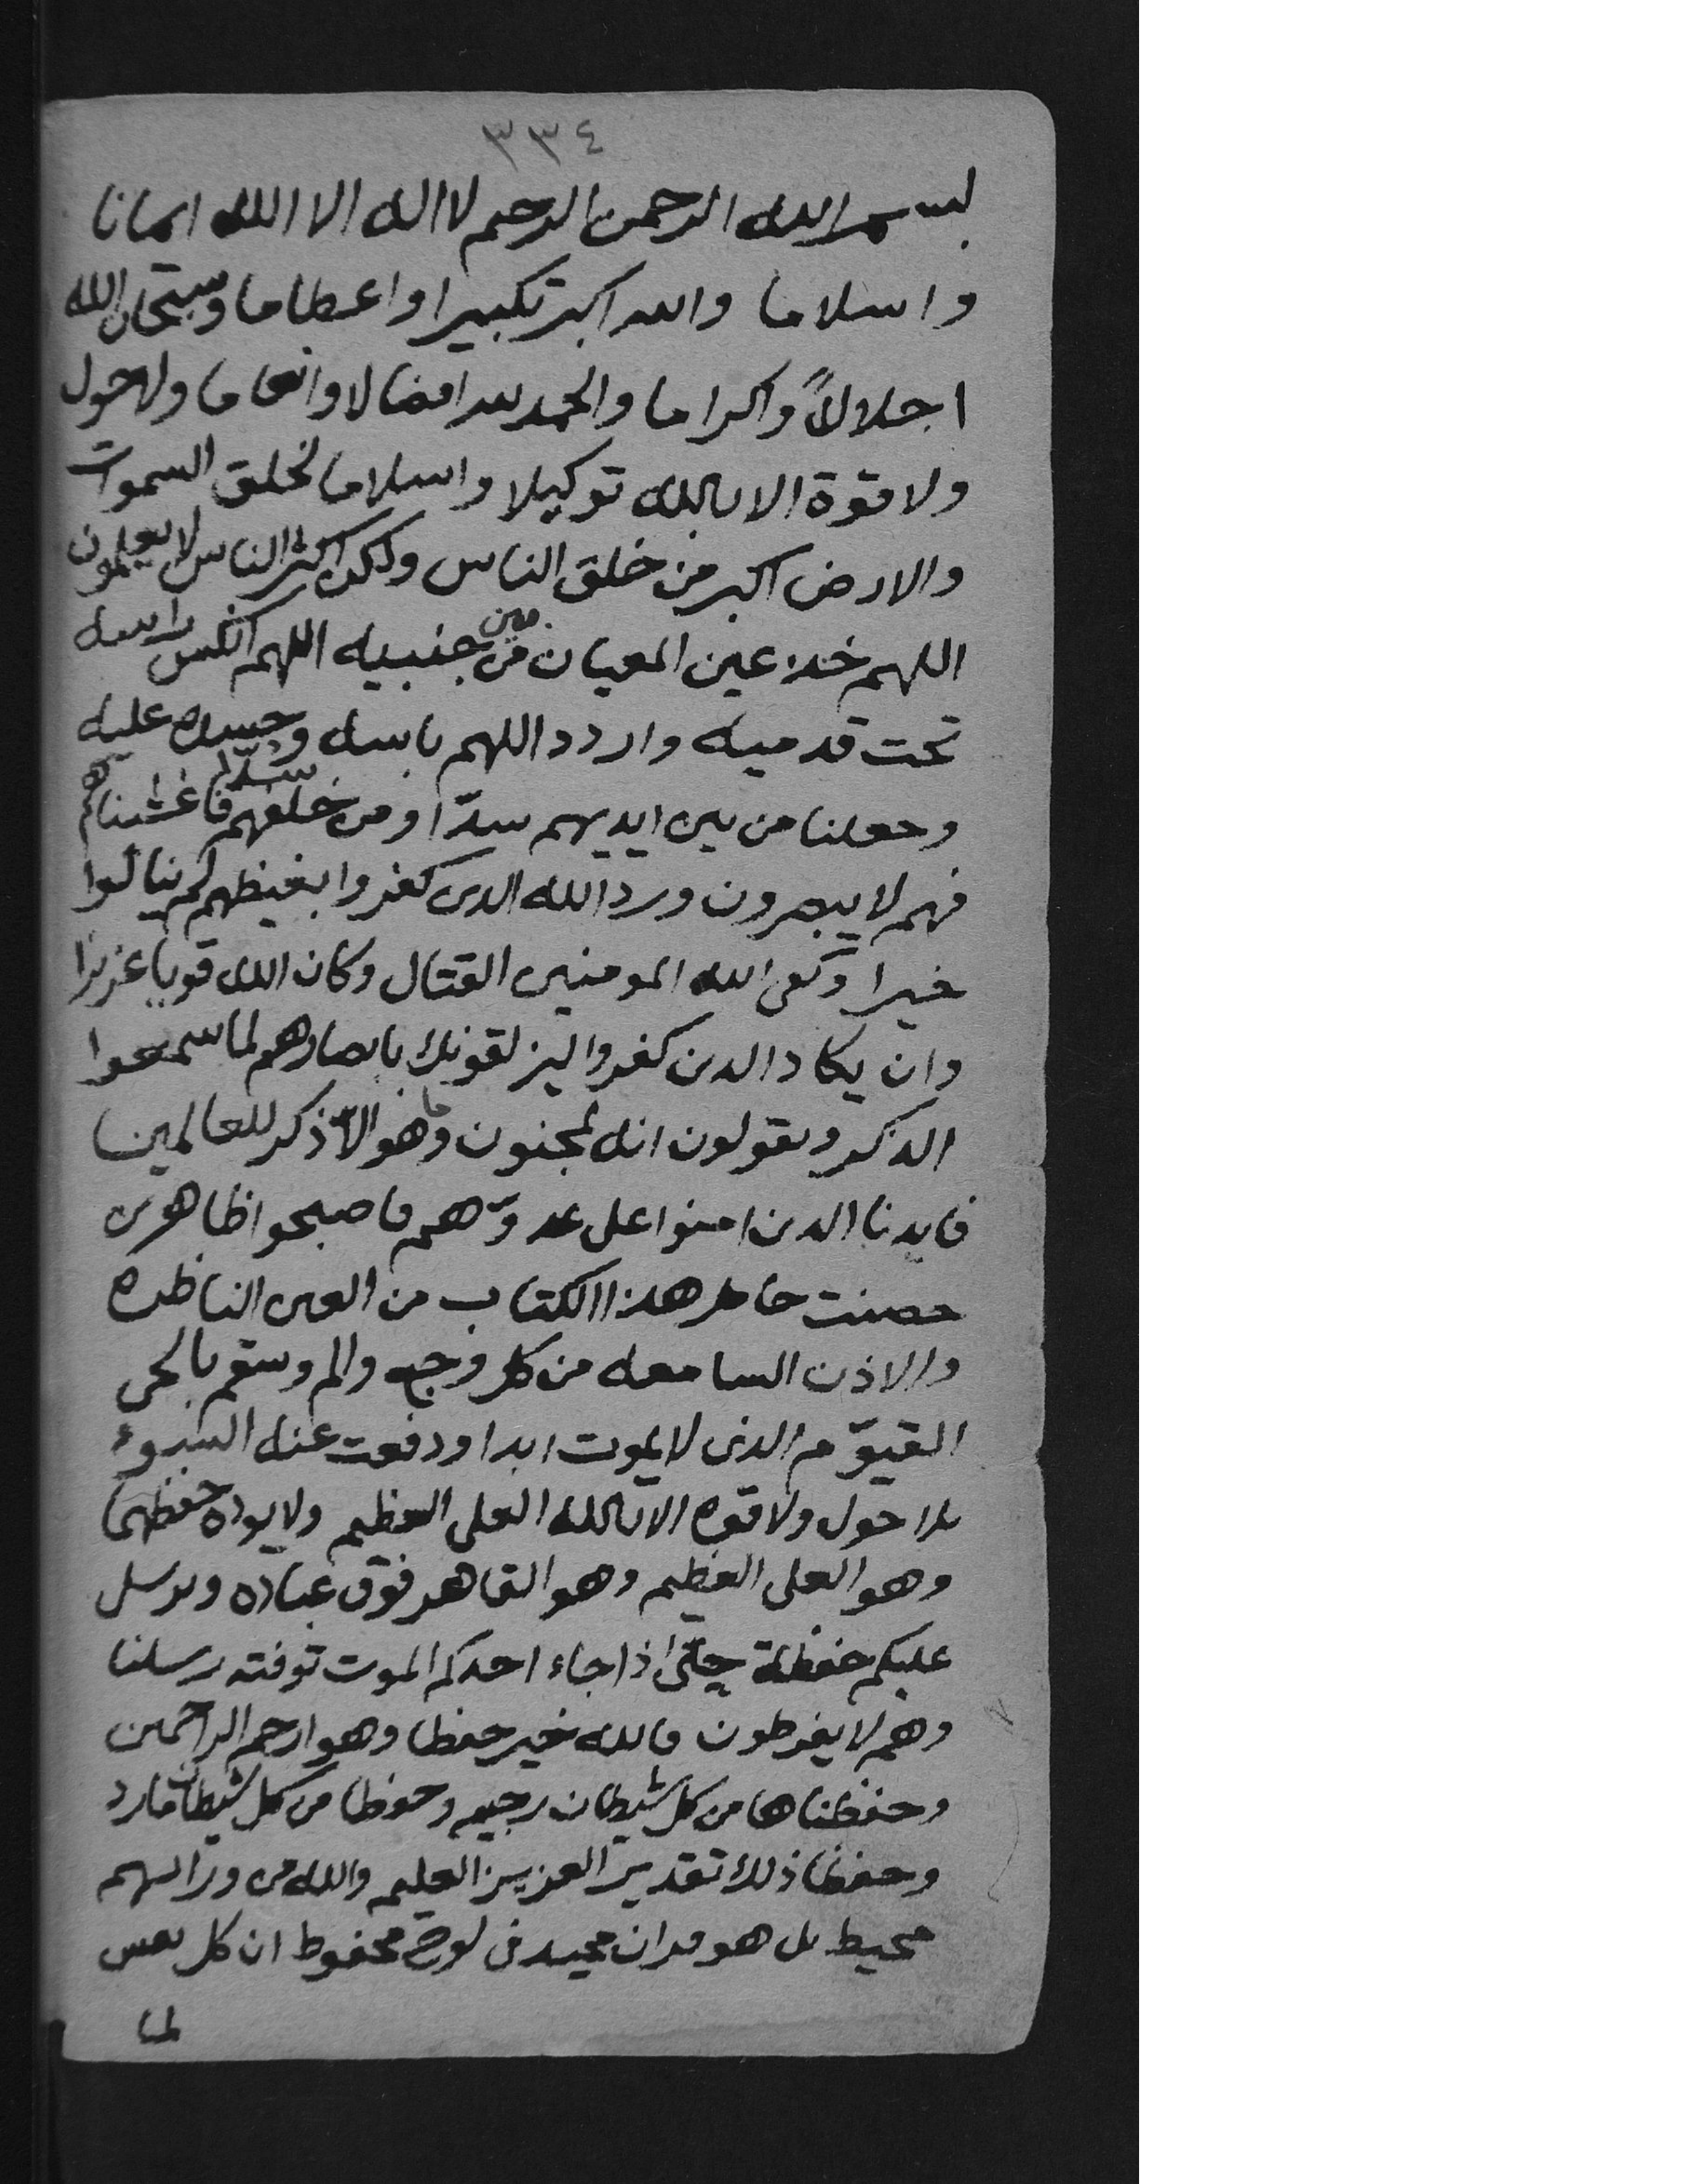 ٣٣٤
بسم الله الرحمن الرحيم لا اله الا الله ايمانا
واسلاما والله اكبر تكبيرا واعظاما وسبحان الله
اجلالاً واكراما والحمد لله افضالا وانعاما ولا حول
ولا قوة الا بالله توكيلا واسلاما لخلق السموات
والارض اكبر من خلق الناس ولكن اكثر الناس لا يعلمون
اللهم خذ عين المعيان من بين جنبيه اللهم انكس راسه
تحت قدميه واردد اللهم باسه وحسده عليه
وجعلنا من بين ايديهم سدّا ومن خلفهم سدّا فاغشيناهم
فهم لا يبصرون ورد الله الذين كفروا بغيظهم لم ينالوا
خيرا وكفى الله المومنين القتال وكان الله قويا عزيزا
وان يكاد الذين كفروا ليزلقونك بابصارهم لما سمعوا
الذكر ويقولون انه لمجنون وما هو الّا ذكر للعالمين
فايدنا الذين امنوا على عدوّهم فاصبحوا ظاهرين
حصنت حامل هذا الكتاب من العين الناظره
والاذن السامعه من كل وجع والم وسقم بالحي
القيوّم الذي لا يموت ابدا ودفعت عنه السوء
بلا حول ولا قوه الا بالله العلي العظيم ولا يوده حفظهما
وهو العلي العظيم وهو القاهر فوق عباده ويرسل
عليكم حفظة حتّى اذا جاء احدكم الموت توفته رسلنا
وهم لا يفرطون فالله خير حفظا وهو ارحم الراحمين
وحفظناها من كل شيطان رجيم وحفظا من كل شيطان مارد
وحفظا ذلك تقدير العزيز العليم والله من ورائهم
محيط بل هو قران مجيد في لوح محفوظ ان كل نفس
لما